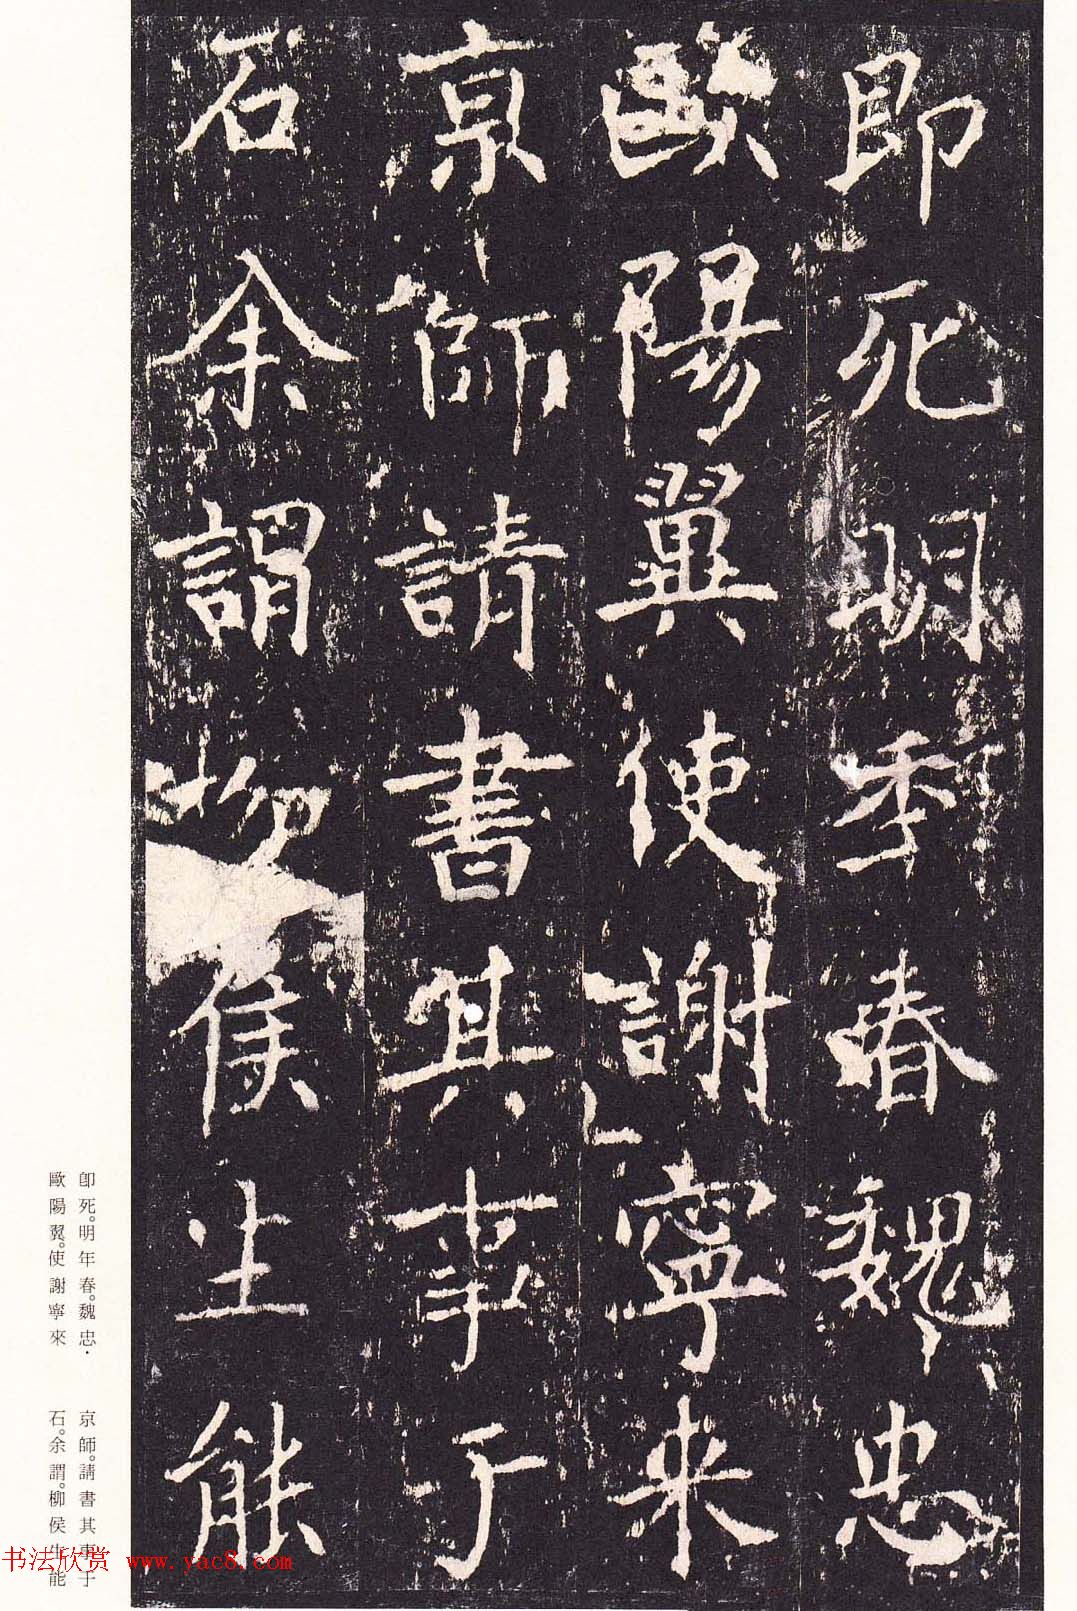 即死明年春魏忠
歐陽翼使謝寧来
京師請書其事于
石余謂柳侯生能
卽死。明年春。魏忠·
歐陽翼。使謝寧來
京師。請書其事于
石。余謂。柳侯生能
书法欣赏 www.yac8.com